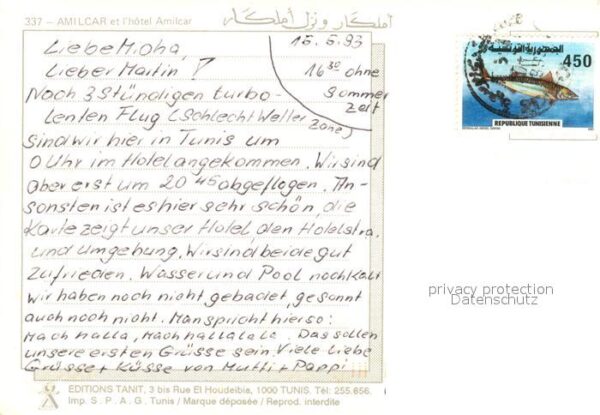 337 – AMILCAR et l'hôtel Amilcar
أملكار ونزل أملكار
Liebe Micha,
Lieber Martin!
15.5.93
16³⁰ ohne
Sommer
zeit
Nach 3 Stündigen turbo-
lenten Flug (Schlecht Wetter
Zone)
sind wir hier in Tunis um
0 Uhr im Hotel angekommen. Wir sind
aber erst um 20 45 abgeflogen. An-
sonsten ist es hier sehr schön, die
Karte zeigt unser Hotel, den Hotelstra.
und Umgebung. Wir sind beide gut
zufrieden. Wasser und Pool noch kalt
wir haben noch nicht gebadet, gesonnt
auch noch nicht. Man spricht hier so:
Mach halla, Mach hallalala. Das sollen
unsere ersten Grüsse sein. Viele liebe
Grüsse + Küsse von Mutti + Pappi
الجمهورية التونسية
450
REPUBLIQUE TUNISIENNE
privacy protection
Datenschutz
EDITIONS TANIT, 3 bis Rue El Houdeibia, 1000 TUNIS. Tél: 255.656.
Imp. S. P. A. G. Tunis / Marque déposée / Reprod. interdite